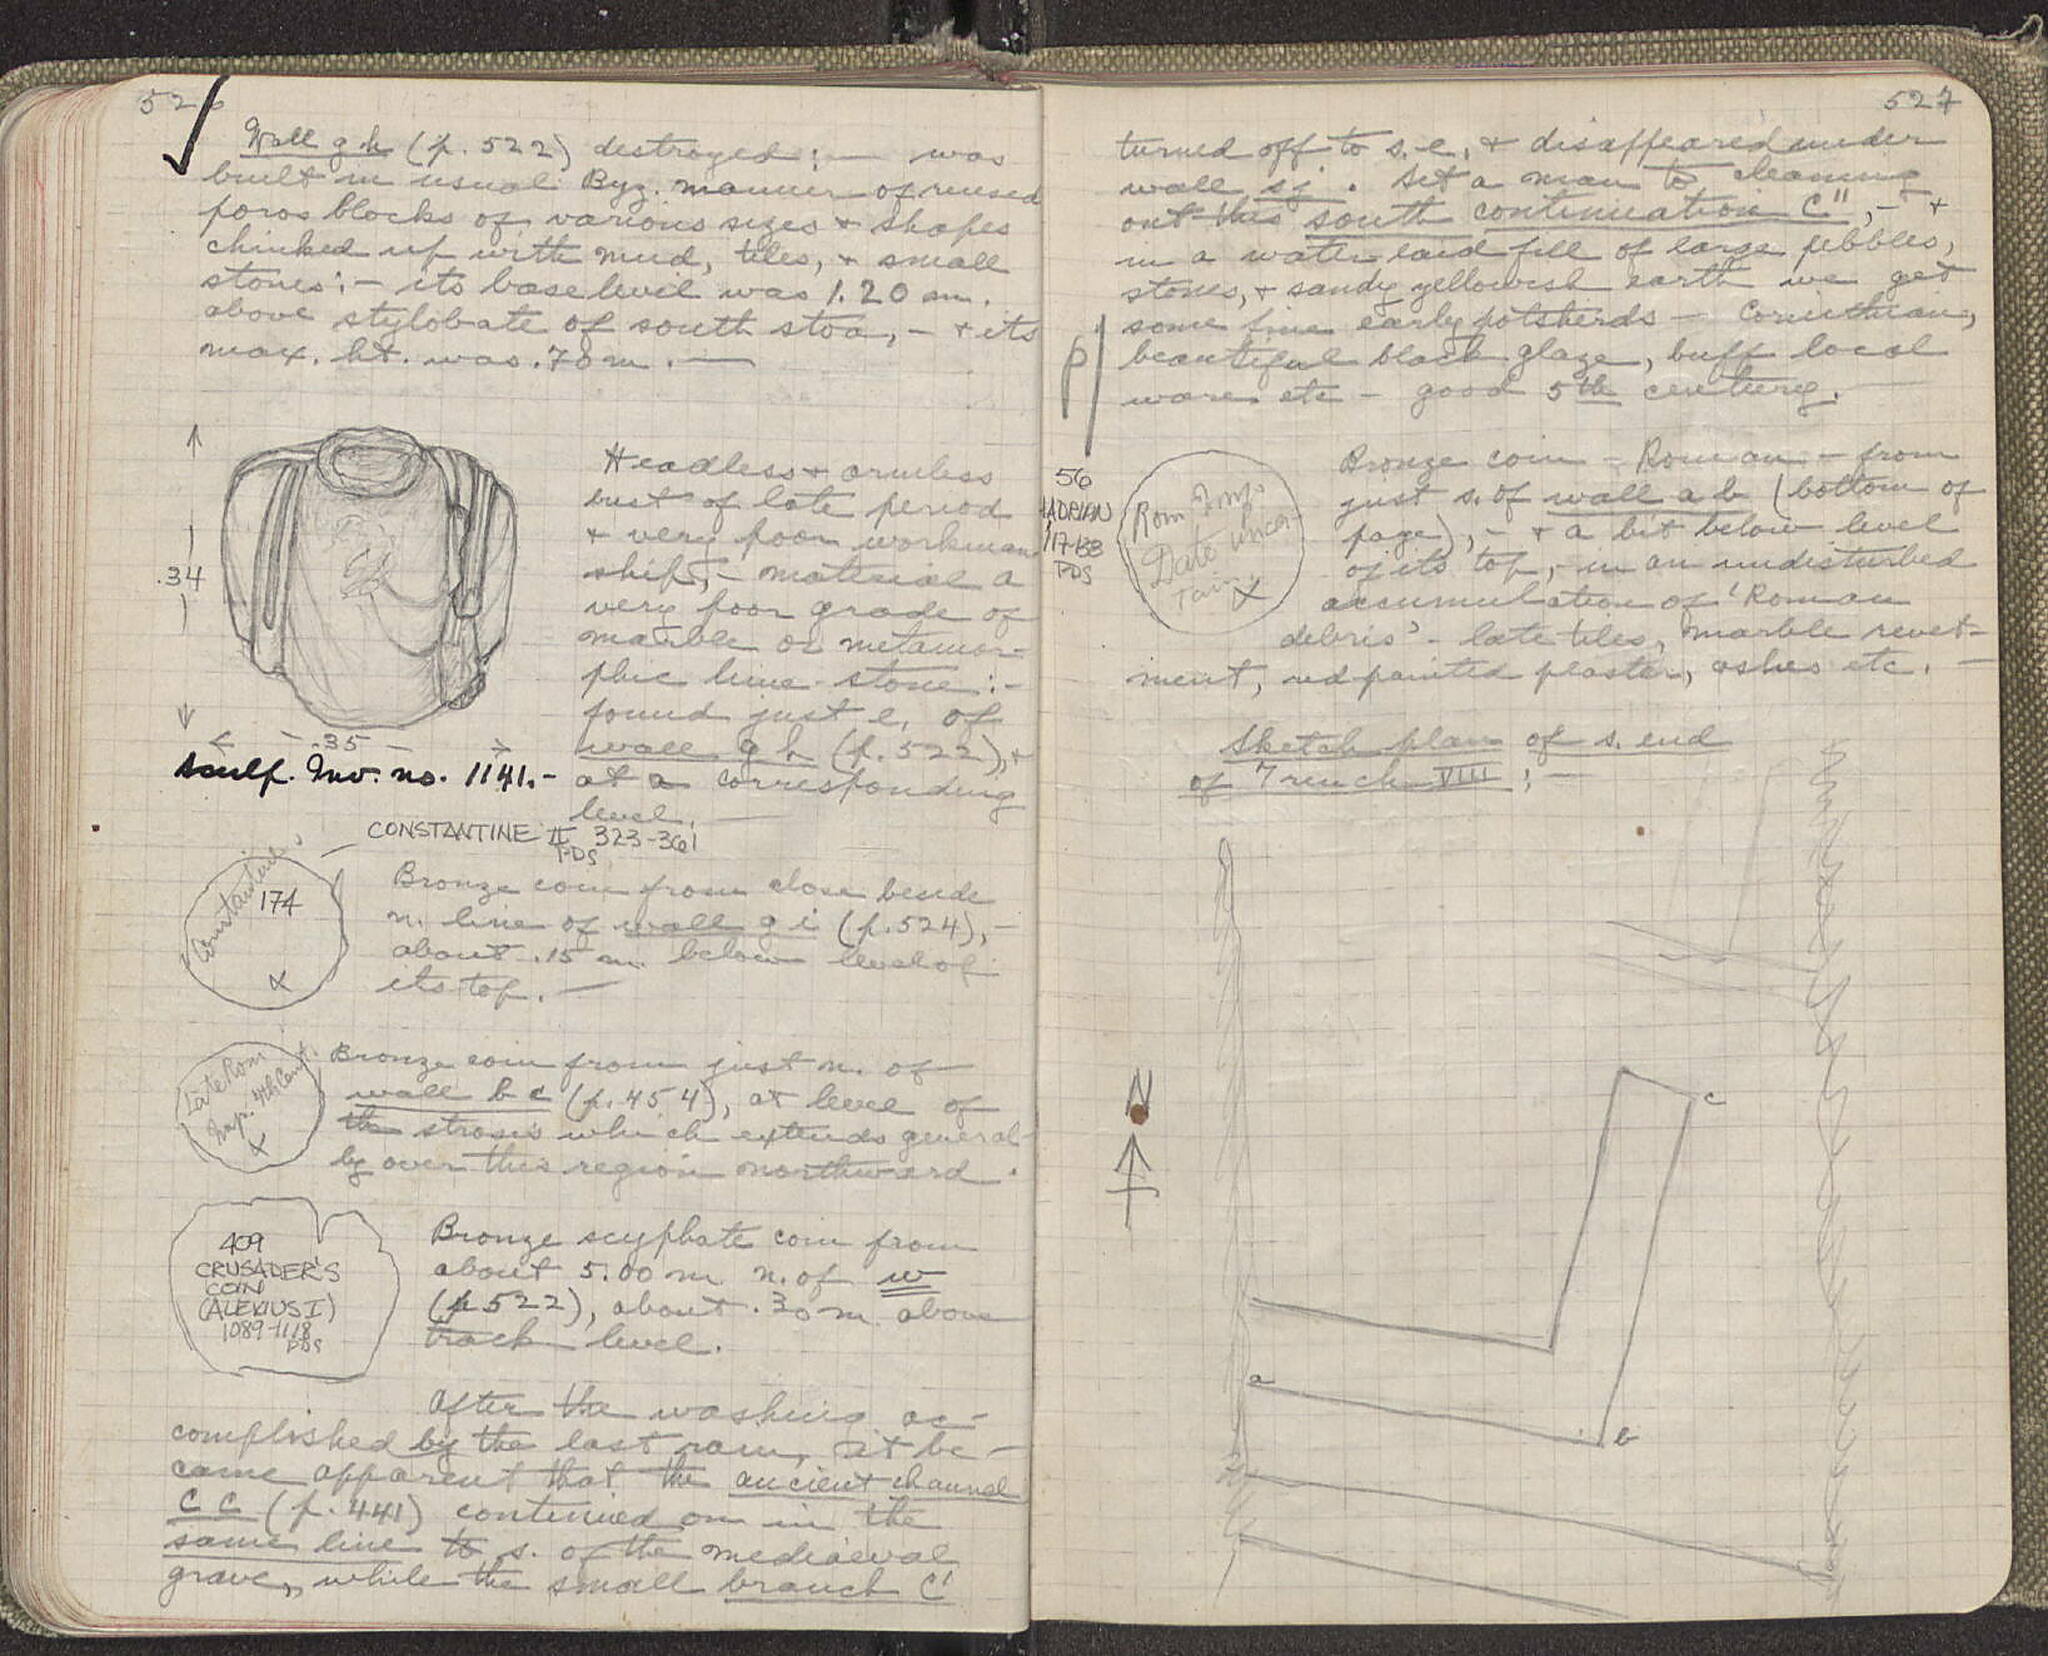 526
Wall g h (p. 522) destroyed :— was
built in usual Byz. manner of reused
poros blocks of various sizes + shapes
chinked up with mud, tiles, + small
stones :- its base level was 1.20 m.
above stylobate of south stoa, - + its
max. ht. was .70 m. —
.34
.35
Sculp. Inv. no. 1141.-
Headless + armless
bust of late period
+ very poor workman-
ship,- material a
very poor grade of
marble or metamor-
phic lime-stone :-
found just e. of
wall g h (p. 522), +
at a corresponding
level. —
CONSTANTINE II 323-361
PDS
Constantius
174
X
Bronze coin from close beside
n. line of wall g i (p. 524),-
about .15 m. below level of
its top. —
Late Rom
Imp. 4th Cent.
X
Bronze coin from just n. of
wall b c (p. 454), at level of
the strosis which extends general-
ly over this region northward.
409
CRUSADER'S
COIN
(ALEXIUS I)
1089-1118
PDS
Bronze scyphate coin from
about 5.00 m. n. of w
(p 522), about .30 m. above
track level.
After the washing ac-
complished by the last rain, it be-
came apparent that the ancient channel
C C (p. 441) continued on in the
same line to s. of the mediaeval
grave, while the small branch C'
527
turned off to s.e. + disappeared under
wall sj. Set a man to cleaning
out this south continuation C", - +
in a water laid fill of large pebbles,
stones, + sandy yellowish earth we get
some fine early potsherds — Corinthian,
beautiful black glaze, buff local
ware etc - good 5th century. —
p
56
HADRIAN
117-138
PDS
Rom Imp.
Date Uncer-
tain
X
Bronze coin - Roman - from
just s. of wall a b (bottom of
page), - + a bit below level
of its top, - in an undisturbed
accumulation of 'Roman
debris' - late tiles, marble revet-
ment, red painted plaster, ashes etc. —
Sketch plan of s. end
of Trench VIII ; —
N
c
a
b